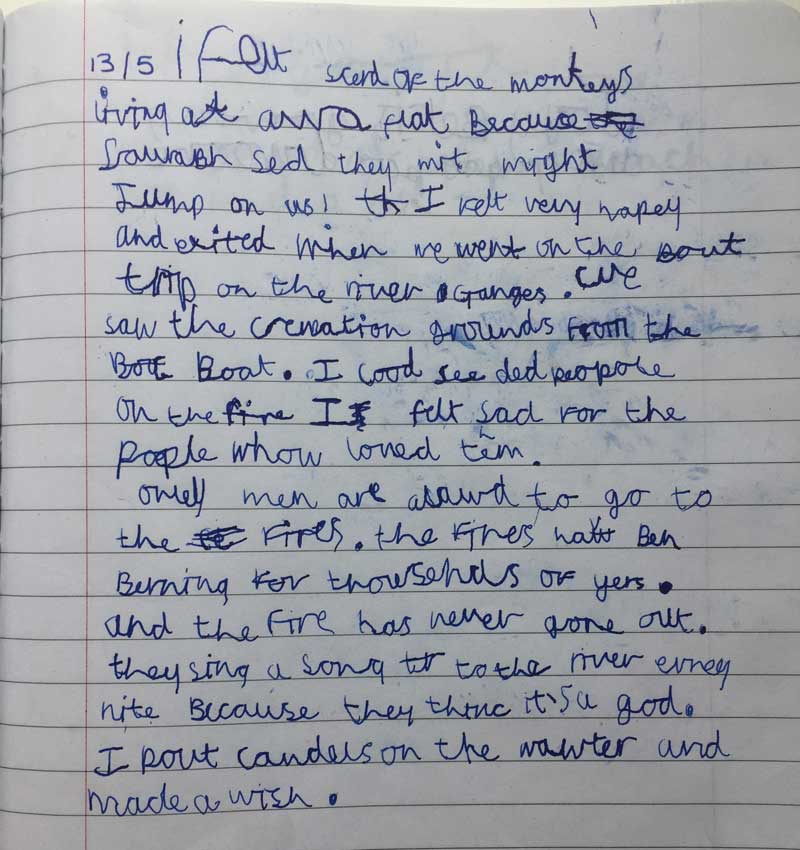 13/5 i Felt scerd of the monkeys
living at awa flat Because
Saurabh sed they mit might
Jump on us! th I felt very hapey
and exited when we went on the bout
trip on the river Ganges. we
saw the cremation grounds from the
Bot Boat. I cood see ded peopole
on the fire I felt sad for the
people whow loved tem.
onley men are alawd to go to
the Fires. the Fires hav Ben
Berning For thowsends of yers.
and the fire has never gone out.
they sing a song to the river evrey
nite Because they thinc it's a god.
I pout candels on the wawter and
made a wish.